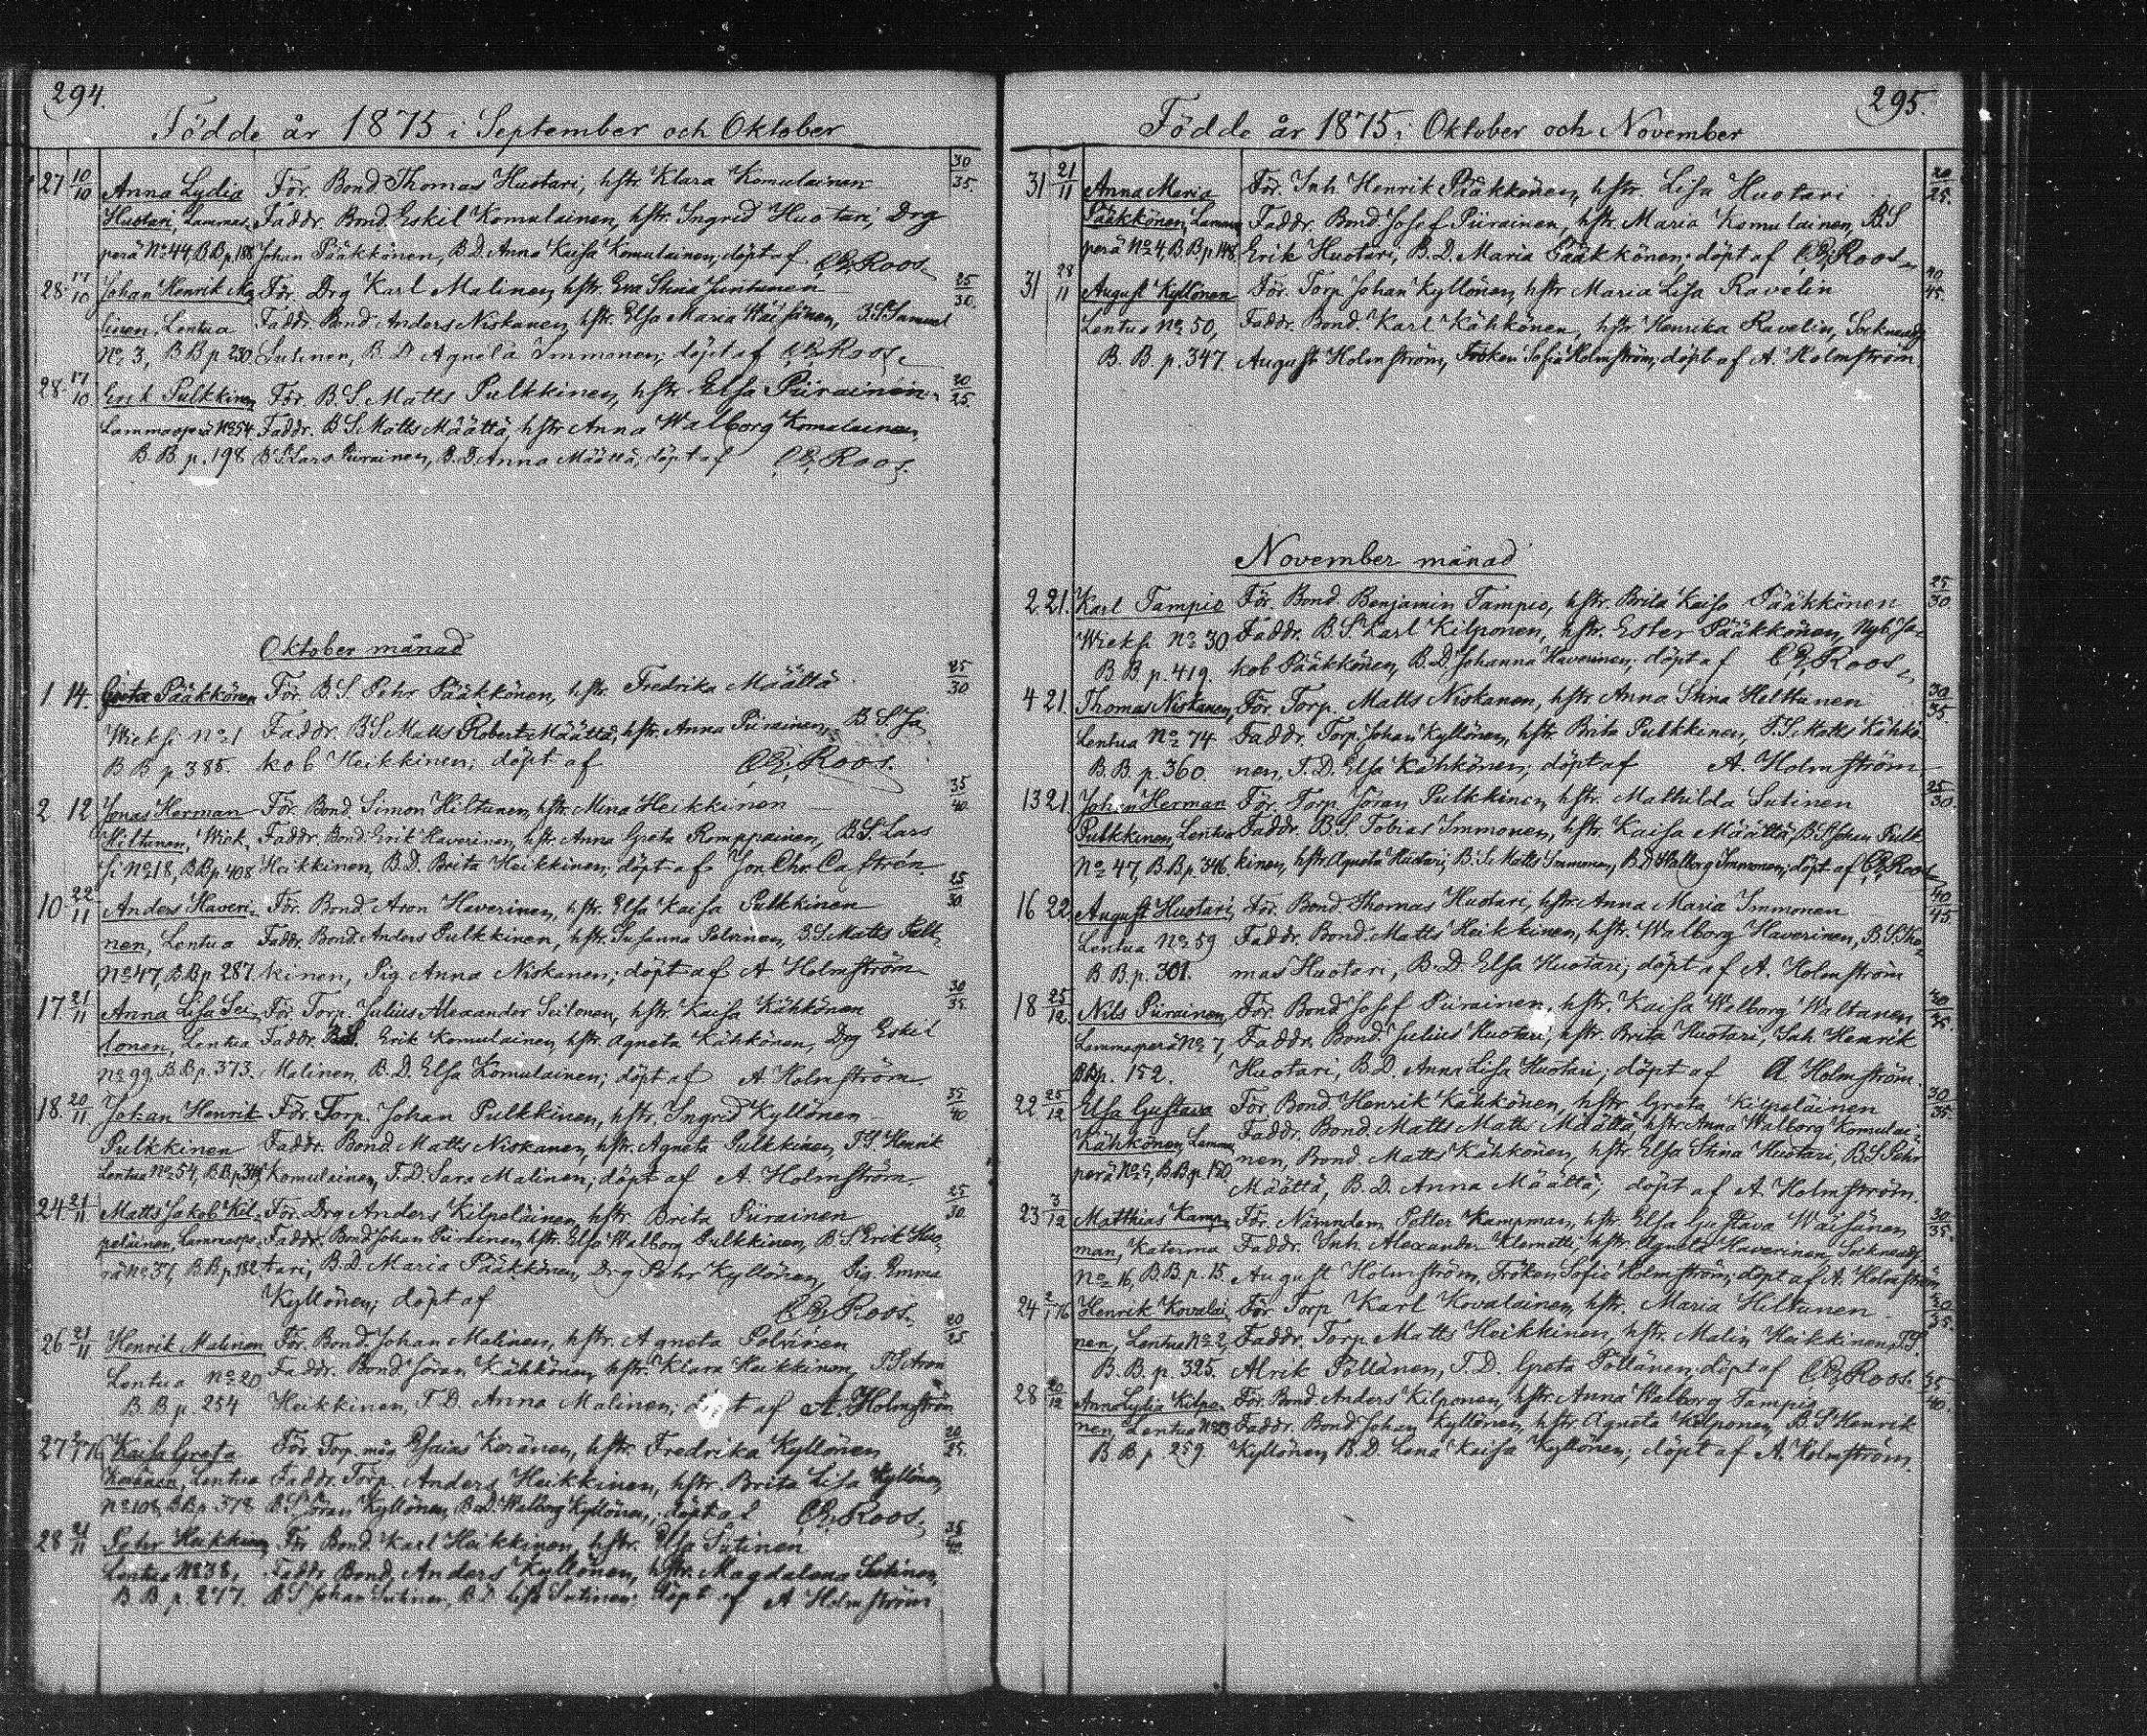 294.
Födde år 1875 i September och Oktober
27 10/10 Anna Lydia För. Bond Thomas Huotari, hstr. Klara Komulainen 30/35.
Huotari, Lammas- Faddr. Bond Eskil Komulainen, hstr. Ingrid Huotari, Drg
perä No 44, B.B.p. 188 Johan Pääkkönen, B.D. Anna Kaisa Komulainen, döpt af Roos
28 17/10 Johan Henrik Ma- För. Drg Karl Malinen, hstr. Eva Stina Juntunen 25/30.
linen, Lentua Faddr. Bond Anders Niskanen, hstr. Elsa Maria Väisänen, B.S. Samuel
No 3, B B p 230. Lutinen, B. D. Agneta Immonen; döpt af Roos
28 17/10 Erik Pulkkinen För. B. S. Matts Pulkkinen, hstr. Elsa Piirainen 20/25.
Lammasperä No 54. Faddr. B S. Matts Määttä, hstr Anna Walborg Komulainen,
B. B. p. 198 B S Lars Piirainen, B. D. Anna Määttä; döpt af Roos.
Oktober månad
1 14. Greta Pääkkönen För. B. S. Pehr Pääkkönen, hstr. Fredrika Määttä 25/30
Wieksi No 1 Faddr. B S Matts Robert Määttä, hstr. Anna Piirainen, B. S. Ja-
B B p 385. kob Heikkinen; döpt af Roos.
2 12 Jonas Herman För. Bond. Simon Hiltunen, hstr. Mina Heikkinen 35/40
Hiltunen, Wiek- Faddr. Bond. Erik Haverinen, hstr Anna Greta Romppainen, B.S. Lars
si No 18, B.B.p. 408 Heikkinen, B.D. Brita Heikkinen; döpt af Jon. Chr. Castrén
10 22/11 Anders Haveri- För. Bond. Aron Haverinen, hstr. Elsa Kaisa Pulkkinen 25/30.
nen, Lentua Faddr. Bond Anders Pulkkinen, hstr. Susanna Polvinen, B.S. Matts Pulk-
No 47, B.B.p. 287. kinen, Pig. Anna Niskanen; döpt af A Holmström
17 21/11 Anna Lisa Sei- För. Torp. Julius Alexander Seilonen, hstr. Kaisa Kähkönen 30/35.
lonen, Lentua Faddr. B.S. Erik Komulainen, hstr. Agneta Kähkönen, Drg Eskil
No 99, B.B.p. 373. Malinen, B.D. Elsa Komulainen; döpt af A. Holmström
18. 20/11 Johan Henrik För. Torp. Johan Pulkkinen, hstr. Ingrid Kyllönen 35/40
Pulkkinen Faddr. Bond. Matts Niskanen, hstr. Agneta Pulkkinen, T.S. Henrik
Lentua No 54, B.B.p. Komulainen, T.D. Sara Malinen; döpt af A. Holmström
24 21/11 Matts Jakob Kil- För. Drg Anders Kilpeläinen, hstr. Brita Piirainen 25/30.
peläinen, Lammaspe- Faddr. Bond Johan Piirainen, hstr. Elsa Walborg Pulkkinen, B. S. Erik Huo-
rä No 37, B.B.p. 182. tari, B.D. Maria Pääkkönen, Drg Pehr Kyllönen, Pig. Emma
Kyllönen; döpt af Roos.
26 21/11 Henrik Malinen För. Bond. Johan Malinen, hstr. Agneta Polvinen 20/25
Lentua No 20 Faddr. Bond Göran Kähkönen, hstr. Klara Heikkinen, T S Aron
B. B p. 254 Heikkinen, T. D. Anna Malinen; d t af A. Holmström
27 2/1 76 Kaisa Greta För. Torp. måg Esaias Keränen, hstr. Fredrika Kyllönen 20/25.
Keränen, Lentua Faddr. Torp. Anders Heikkinen, hstr. Brita Lisa Kyllönen,
No 108, B.B.p. 378 B.S. Göran Kyllönen, B.D. Walborg Kyllönen; döpt af Roos.
28 21/11 Pehr Heikkinen För. Bond. Karl Heikkinen, hstr. Elsa Sutinen 35/40.
Lentua No 38, Faddr. Bond. Anders Kyllönen, hstr. Magdalena Sutinen,
B B. p. 277. B S Johan Sutinen, B. D. Lisa Sutinen; döpt af A Holmström
295.
Födde år 1875 i Oktober och November
31 21/11 Anna Maria För. Inh Henrik Pääkkönen, hstr. Lisa Huotari 20/25.
Pääkkönen, Lammas- Faddr. Bond Josef Piirainen, hstr. Maria Komulainen, B.S
perä No 4, B.B.p 148. Erik Huotari, B.D. Maria Pääkkönen; döpt af Roos
31 28/11 August Kyllönen För. Torp Johan Kyllönen, hstr Maria Lisa Ravelin 40/45.
Lentua No 50, Faddr. Bond. Karl Kähkönen, hstr. Henrika Ravelin, Socknandj
B. B. p. 347. August Holmström, Fröken Sofia Holmström; döpt af A. Holmström
November månad
2 21. Karl Tampio För. Bond. Benjamin Tampio, hstr. Brita Kaisa Pääkkönen 25/30
Wieksi No 30. Faddr. B. S. Karl Kilponen, hstr. Ester Pääkkönen, Nyb. Ja-
B B. p. 419. kob Pääkkönen, B.D. Johanna Haverinen; döpt af Roos
4 21. Thomas Niskanen, För. Torp. Matts Niskanen, hstr. Anna Stina Helttunen 30/35.
Lentua No 74. Faddr. Torp. Johan Kyllönen, hstr Brita Pulkkinen, T.S. Matts Kähkö-
B. B. p. 360. nen, T. D. Elsa Kähkönen; döpt af A. Holmström
13 21. Johan Herman För. Torp. Göran Pulkkinen, hstr. Mathilda Sutinen 25/30.
Pulkkinen, Lentua Faddr. B. S. Tobias Immonen, hstr. Kaisa Määttä, B.S. Johan Pulk-
No 47, B.B.p. 346. kinen, hstr. Agneta Huotari, B. S. Matts Immonen, B.D. Walborg Immonen; döpt af Roos
16 22. August Huotari, För. Bond. Thomas Huotari, hstr. Anna Maria Immonen 40/45.
Lentua No 59 Faddr. Bond. Matts Heikkinen, hstr. Walborg Haverinen, B.S. Tho-
B B. p. 301. mas Huotari, B. D. Elsa Huotari; döpt af A. Holmström
18 25/12. Nils Piirainen, För. Bond Josef Piirainen, hstr. Kaisa Walborg Waltanen
Lammasperä No 7, Faddr. Bond. Julius Huotari, hstr. Brita Huotari, Inh Henrik
B.B.p. 152. Huotari, B.D. Anna Lisa Huotari; döpt af A Holmström.
22 25/12 Elsa Gustava För Bond. Henrik Kähkönen, hstr. Greta Kilpeläinen 30/35.
Kähkönen, Lammas- Faddr. Bond. Matts Matts Määttä, hstr Anna Walborg Komulai-
perä No 9, B.B.p. 150 nen, Bond. Matts Kähkönen, hstr. Elsa Stina Huotari, B.S. Pehr
Määttä, B. D. Anna Määttä; döpt af A. Holmström.
23 3/12 Matthias Kamp- För. Nämndem. Petter Kampman, hstr. Elsa Gustava Waisänen 30/35.
man, Katerma Faddr. Inh. Alexander Klemetti, hstr. Agneta Haverinen, Socknandj
No 16, B.B. p. 15. August Holmström, Fröken Sofia Holmström; döpt af A. Holmström
24 2/1 76 Henrik Kovalai- För. Torp. Karl Kovalainen, hstr. Maria Hiltunen 30/35.
nen, Lentua No 2, Faddr. Torp. Matts Heikkinen, hstr. Malin Heikkinen, T.S.
B. B. p. 325. Alrik Pöllänen, T. D. Greta Pöllänen; döpt af Roos.
28 20/12 Anna Lydia Kilpo- För. Bond. Anders Kilponen, hstr. Anna Walborg Tampio 35/40.
nen, Lentua No 23, Faddr. Bond. Johan Kyllönen, hstr. Agneta Kilponen, B. S. Henrik
B. B p. 259. Kyllönen, B. D. Lena Kaisa Kyllönen; döpt af A. Holmström.